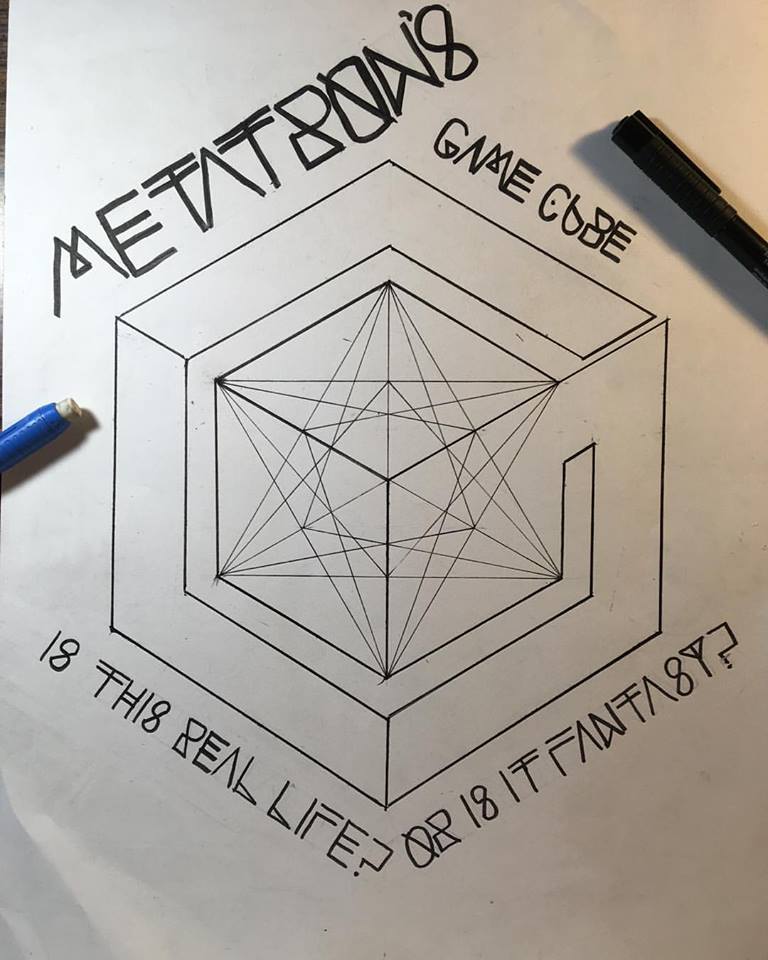 METATRON'S
GAME CUBE
IS THIS REAL LIFE?
OR IS IT FANTASY?